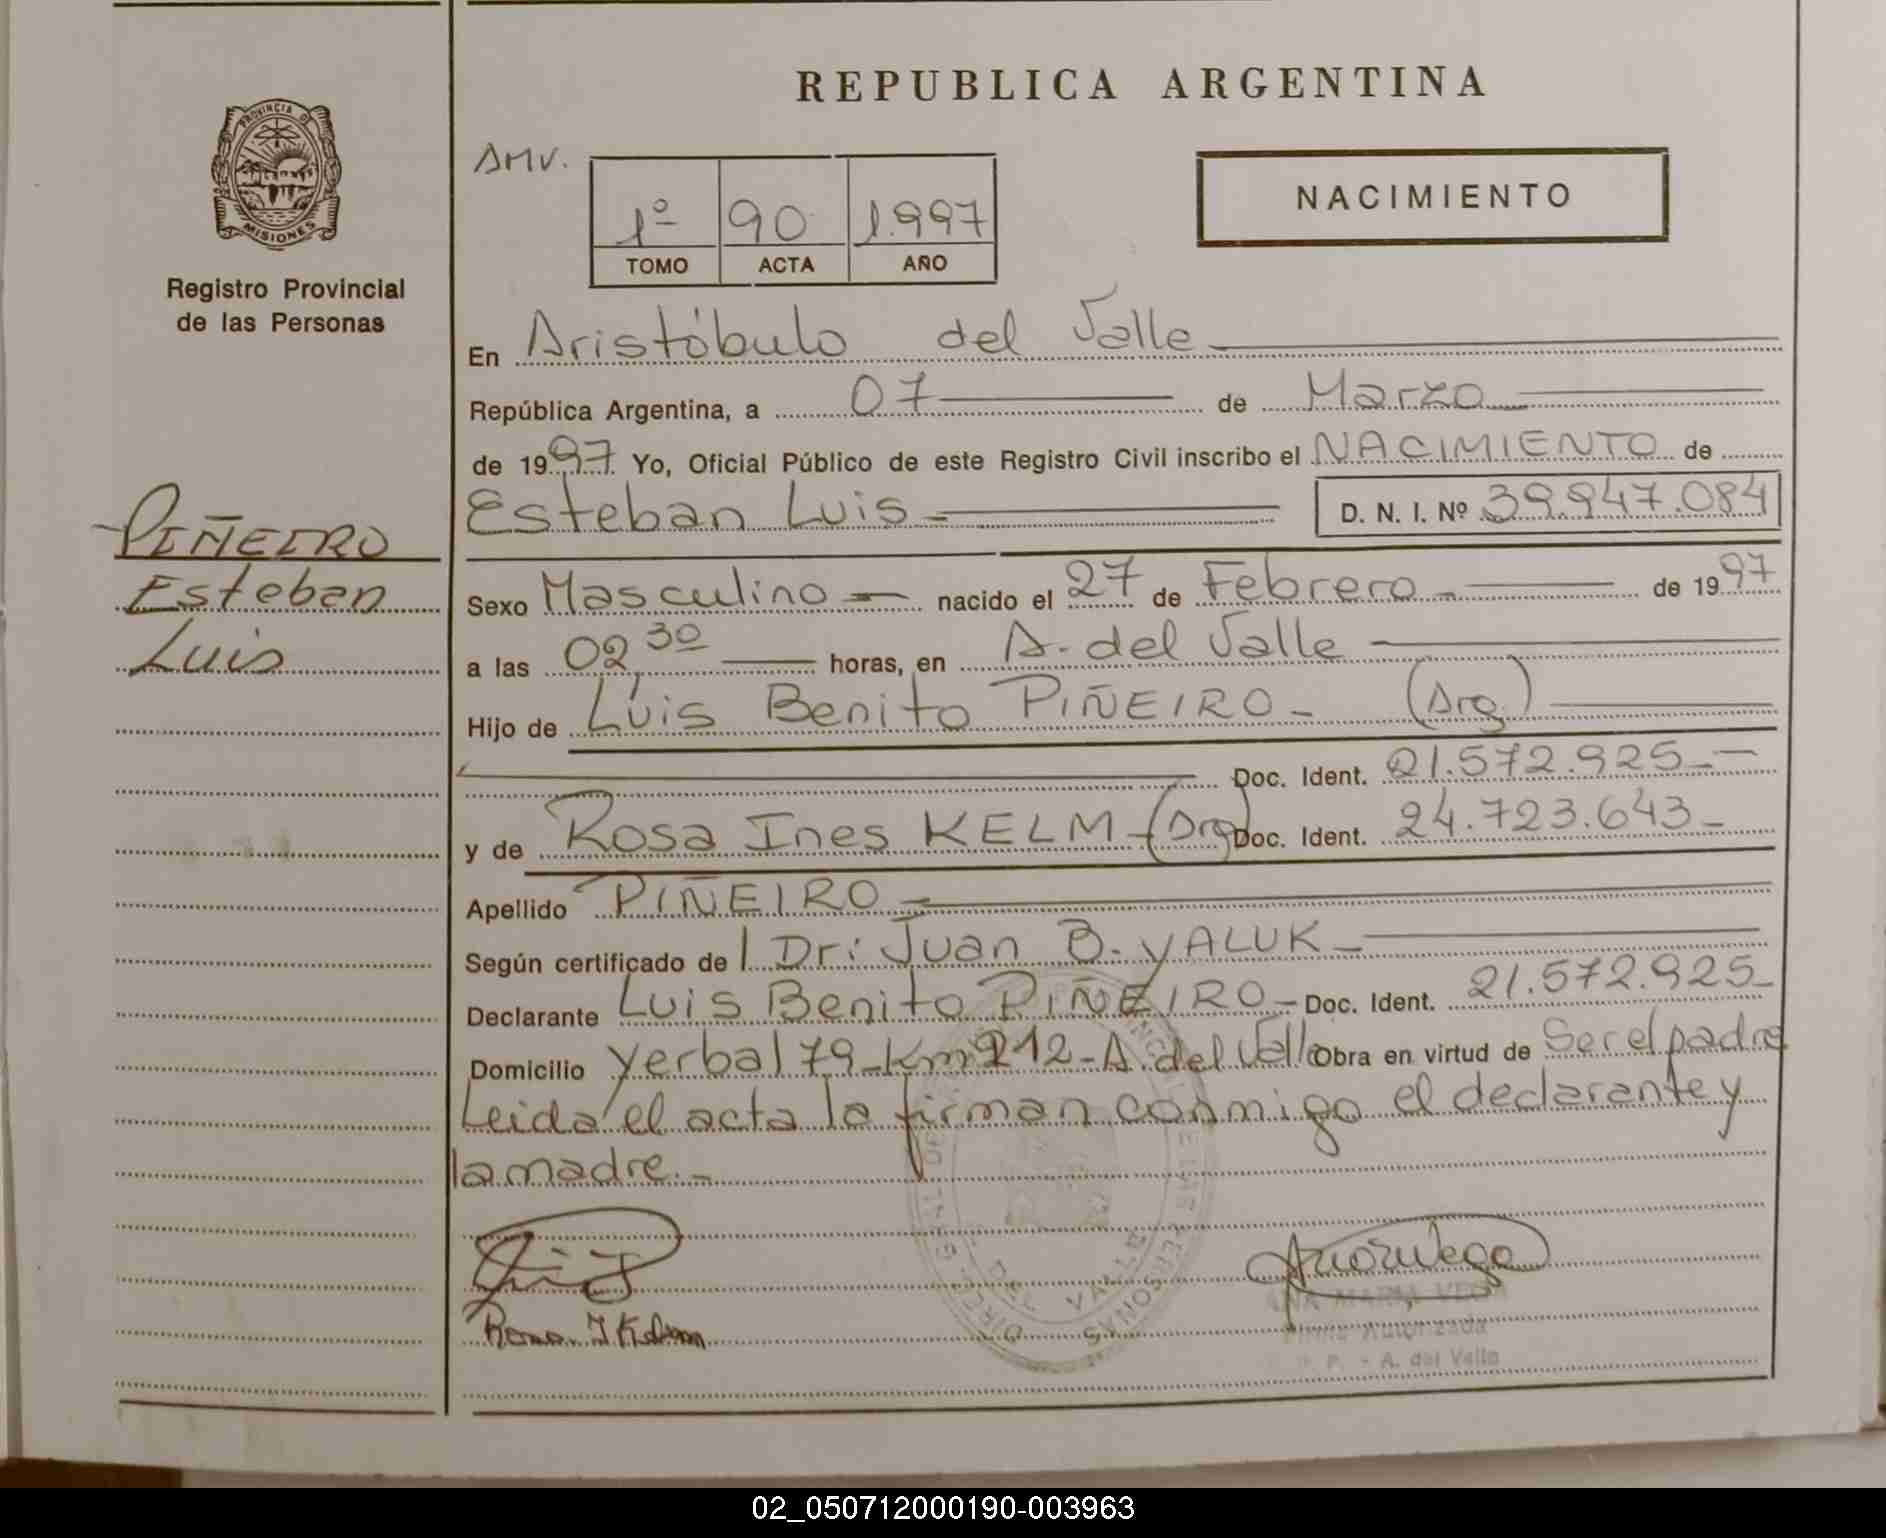 REPUBLICA ARGENTINA
PROVINCIA DE
MISIONES
Registro Provincial
de las Personas
AMV.
1º 90 1.997
TOMO ACTA AÑO
NACIMIENTO
En Aristóbulo del Valle
República Argentina, a 07 de Marzo
de 1997 Yo, Oficial Público de este Registro Civil inscribo el NACIMIENTO de
Esteban Luis D. N. I. Nº 39.947.084
PIÑEIRO
Esteban
Luis
Sexo Masculino nacido el 27 de Febrero de 1997
a las 02,30 horas, en A. del Valle
Hijo de Luis Benito PIÑEIRO (Arg)
Doc. Ident. 21.572.925
y de Rosa Ines KELM (Arg) Doc. Ident. 24.723.643
Apellido PIÑEIRO
Según certificado de Dr: Juan B. YALUK
Declarante Luis Benito PIÑEIRO Doc. Ident. 21.572.925
Domicilio Yerbal 79 Km 212 - A. del Valle Obra en virtud de Ser el padre
Leida el acta la firman conmigo el declarante y
la madre.
Rosa I Kelm
ANA MARIA VEGA
Firma Autorizada
P. - A. del Valle
02_050712000190-003963